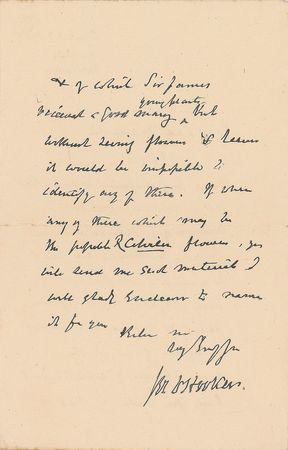 & of which Sir James
received a good many young plants, but
without seeing flowers & leaves
it would be impossible to
identify any of these. If when
any of these which may be
the flowers, you
will send me such material I
will gladly endeavour to name
it for you
Believe me
Jos D Hooker.